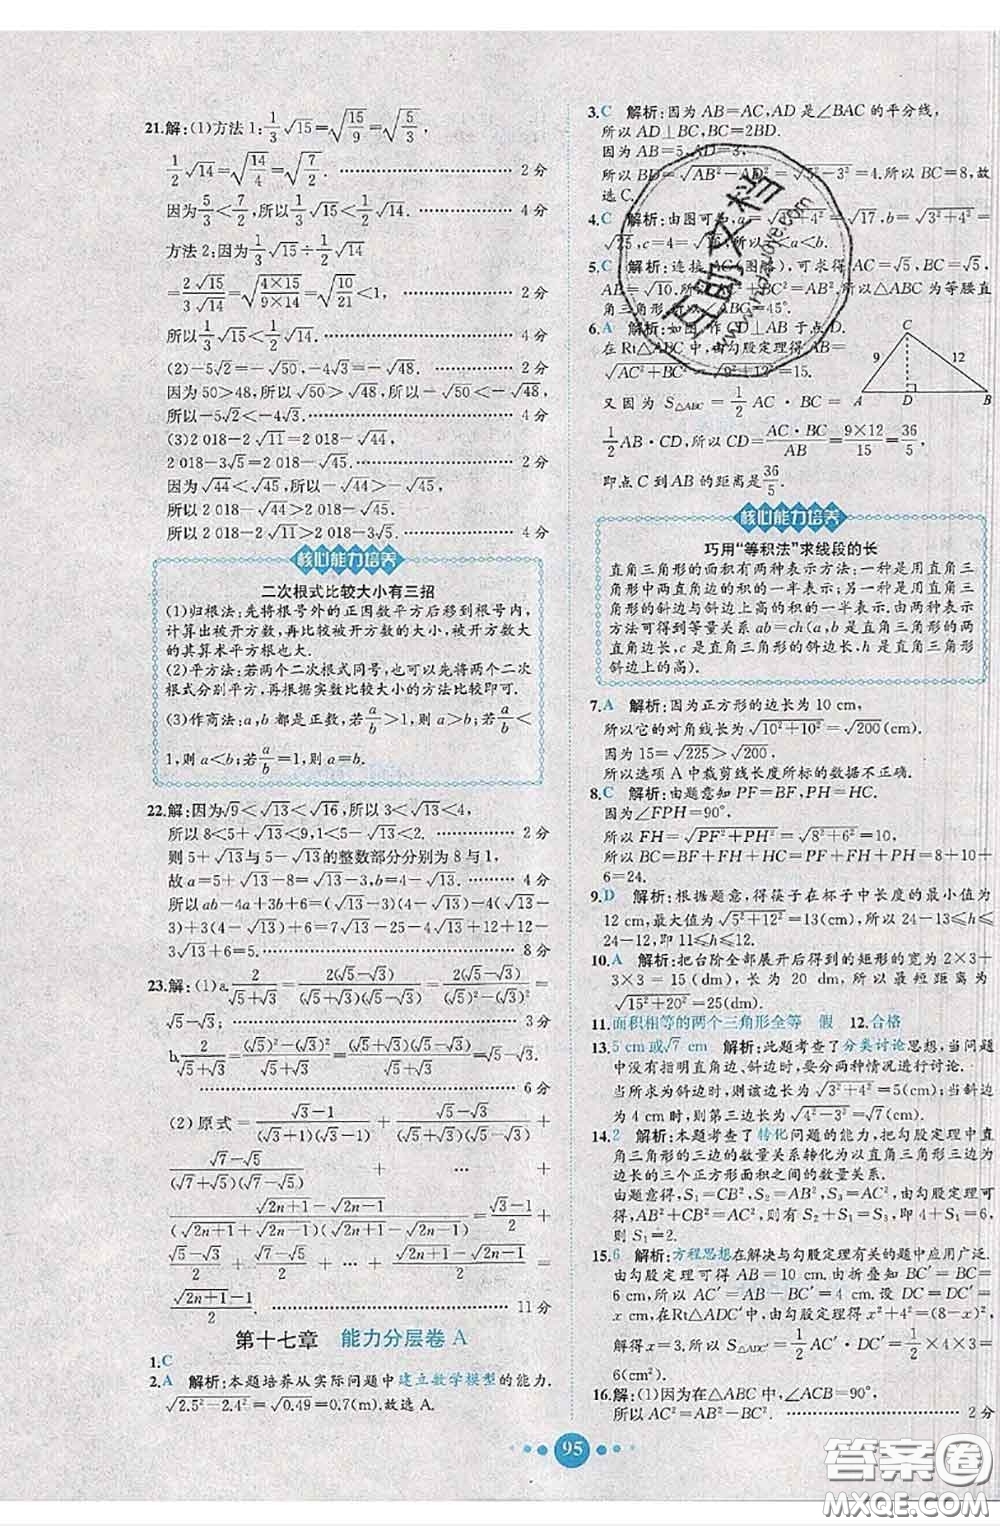 21.解:(1)方法1:1/3√15=√(15/9)=√(5/3),
1/2√14=√(14/4)=√(7/2).……2分
因为5/3<7/2,所以1/3√15<1/2√14.……4分
方法2:1/3√15÷1/2√14
=2√15/3√14=√(4×15)/√(9×14)=√(10/21)<1,……2分
所以1/3√15<1/2√14.……4分
(2)-5√2=-√50,-4√3=-√48.……2分
因为50>48,所以√50>√48,所以-√50<-√48,
所以-5√2<-4√3.……4分
(3)2 018-2√11=2 018-√44,
2 018-3√5=2 018-√45.……2分
因为√44<√45,所以-√44>-√45,
所以2 018-√44>2 018-√45,
所以2 018-2√11>2 018-3√5.……4分
核心能力培养
二次根式比较大小有三招
(1)归根法:先将根号外的正因数平方后移到根号内,
计算出被开方数,再比较被开方数的大小,被开方数大
的其算术平方根也大.
(2)平方法:若两个二次根式同号,也可以先将两个二次
根式分别平方,再根据实数比较大小的方法比较即可.
(3)作商法:a,b都是正数,若a/b>1,则a>b;若a/b<
1,则a<b;若a/b=1,则a=b.
22.解:因为√9<√13<√16,所以3<√13<4,
所以8<5+√13<9,1<5-√13<2.……2分
则5+√13与5-√13的整数部分分别为8与1,
故a=√13-3,b=4-√13.……4分
所以ab-4a+3b+6=(√13-3)(4-√13)-4(√13-
3)+3(4-√13)+6=7√13-25-4√13+12+12-
3√13+6=5.……8分
23.解:(1)a.2/(√5+√3)=2(√5-√3)/(√5+√3)(√5-√3)=2(√5-√3)/2=
√5-√3;……3分
b.2/(√5+√3)=((√5)²-(√3)²)/(√5+√3)=(√5+√3)(√5-√3)/(√5+√3)=√5-√3.
……6分
(2)原式=(√3-1)/(√3+1)(√3-1)+(√5-√3)/(√5+√3)(√5-√3)+
(√7-√5)/(√7+√5)(√7-√5)+…+
(√(2n+1)-√(2n-1))/(√(2n+1)+√(2n-1))(√(2n+1)-√(2n-1))=(√3-1)/2+
(√5-√3)/2+(√7-√5)/2+…+(√(2n+1)-√(2n-1))/2=
(√(2n+1)-1)/2.……11分
第十七章 能力分层卷A
1.C
2.A 解析:本题培养从实际问题中建立数学模型的能力.
√(2.5²-2.4²)=√0.49=0.7(m).故选A.
3.C 解析:因为AB=AC,AD是∠BAC的平分线,
所以AD⊥BC,BC=2BD.
因为AB=5,AD=3,
所以BD=√(AB²-AD²)=√(5²-3²)=4.所以BC=8,故
选C.
4.C 解析:由图可知,a=√(1²+4²)=√17,b=√(3²+4²)=
√25,c=4=√16,所以c<a<b.
5.C 解析:连接AC(图略),可求得AC=√5,BC=√5,
AB=√10.所以△ABC为等腰直
角三角形,所以∠ABC=45°.
6.A 解析:如图,作CD⊥AB于点D.
在Rt△ABC中,由勾股定理得AB=
√(AC²+BC²)=√(9²+12²)=15.
又因为S△ABC=1/2AC·BC=
1/2AB·CD,所以CD=AC·BC/AB=9×12/15=36/5,
即点C到AB的距离是36/5.
C
9 12
A D B
核心能力培养
巧用“等积法”求线段的长
直角三角形的面积有两种表示方法:一种是用直角三
角形中两直角边的积的一半表示;另一种是用直角三角
形的斜边与斜边上高的积的一半表示.由两种表示
方法可得到等量关系ab=ch(a,b是直角三角形的两
直角边长,c是直角三角形的斜边长,h是直角三角形
斜边上的高).
7.A 解析:因为正方形的边长为10 cm,
所以它的对角线长为√(10²+10²)=√200(cm).
因为15=√225>√200,
所以选项A中裁剪线长度所标的数据不正确.
8.C 解析:由题意知PF=BF,PH=HC.
因为∠FPH=90°,
所以FH=√(PF²+PH²)=√(8²+6²)=10,
所以BC=BF+FH+HC=PF+FH+PH=8+10+
6=24.
9.D 解析:根据题意,得筷子在杯子中长度的最小值为
12 cm,最大值为√(5²+12²)=13(cm),所以24-13≤h≤
24-12,即11≤h≤12.
10.A 解析:把台阶全部展开后得到的矩形的宽为2×3+
3×3=15(dm),长为20 dm,所以最短路长为
√(15²+20²)=25(dm).
11.面积相等的两个三角形全等 假 12.合格
13.5 cm或√7 cm 解析:此题考查了分类讨论思想,当问题
中没有指明直角边、斜边时,要分两种情况进行讨论.
当所求为斜边时,则该边长为√(3²+4²)=5(cm);当斜边
为4 cm时,则第三边长为√(4²-3²)=√7(cm).
14.2 解析:本题考查了转化问题的能力,把勾股定理中直
角三角形的三边的数量关系转化为以直角三角形三边为
边长的三个正方形面积之间的数量关系.
由题意得,S₁=CB²,S₂=AB²,S₃=AC².由勾股定理可
得,AB²+CB²=AC²,则有S₂+S₁=S₃,
所以S₁=2.
15.6 解析:方程思想在解决与勾股定理有关的题中应用广泛.
由勾股定理可得AB=10 cm.由折叠知BC′=BC=
6 cm,所以AC′=AB-BC′=4 cm.设DC=DC′=
x cm,在Rt△ADC′中,由勾股定理得x²+4²=(8-x)²,
解得x=3,所以S△ADC′=1/2AC′·DC′=1/2×4×3=
6(cm²).
16.解:(1)因为在△ABC中,∠ACB=90°,
所以AC²=AB²-BC².……2分
95
互助文档
www.Hdzuoye.com
答案圈
MXQE.COM